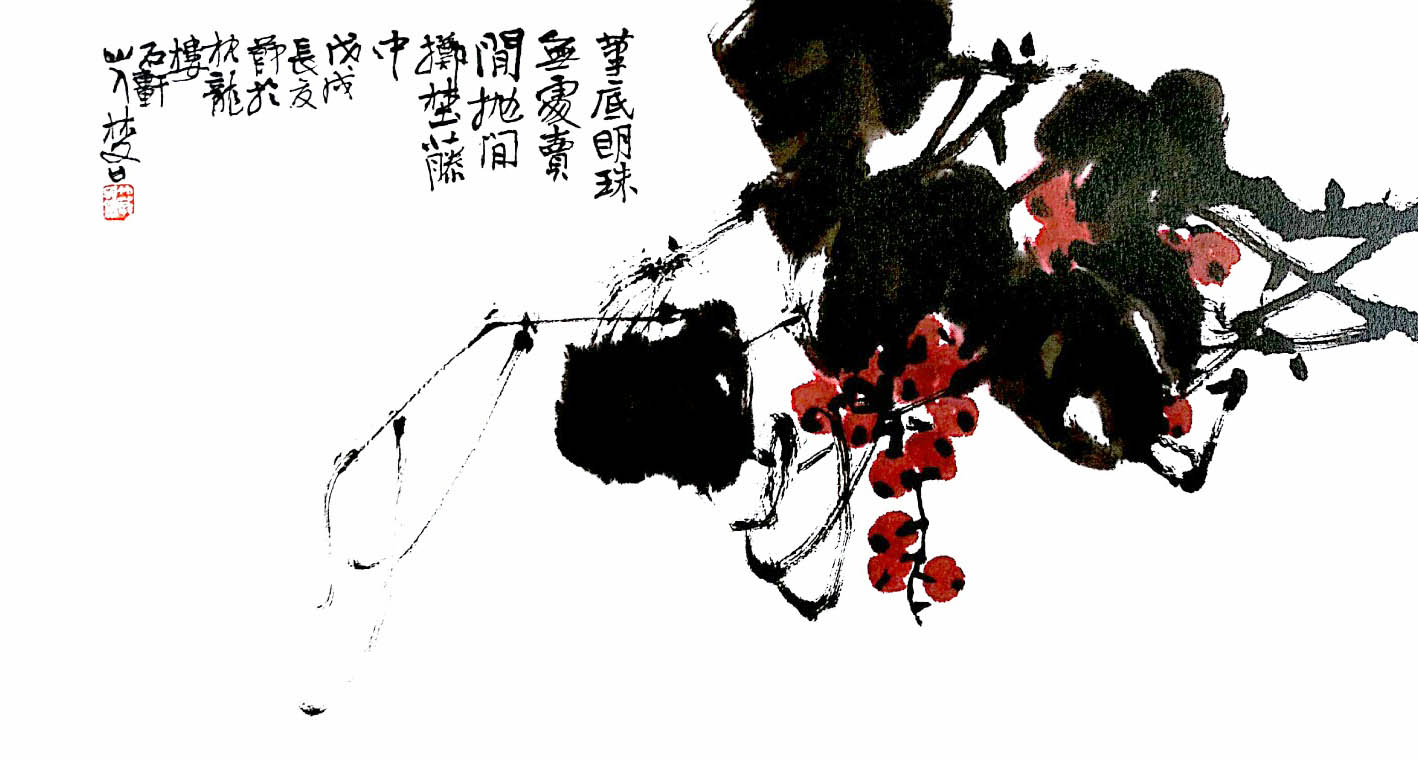 筆底明珠
無處賣
閒抛閒
擲埜藤
中
戊戌
長夏
爵於
枕龍
樓
石軒
山人梦白